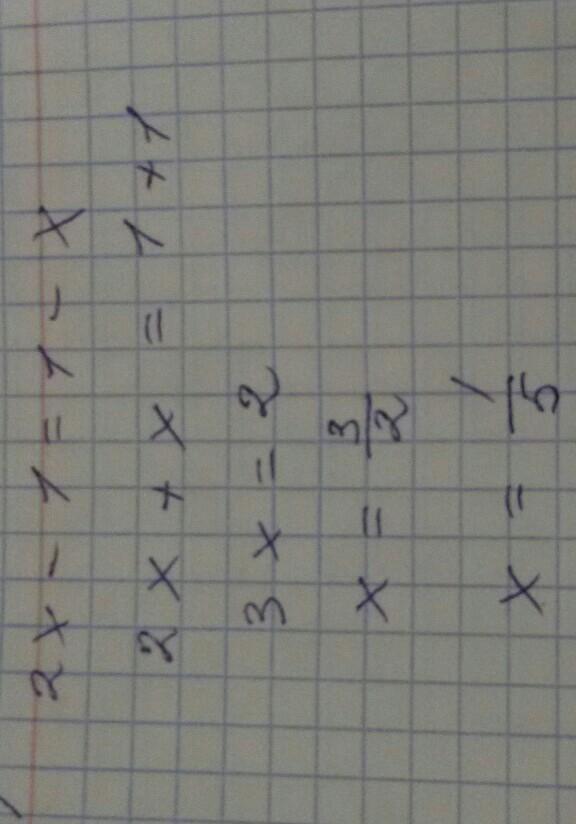 2x - 1 = 1 - x
2x + x = 1 + 1
3x = 2
x = 3/2
x = 1/5